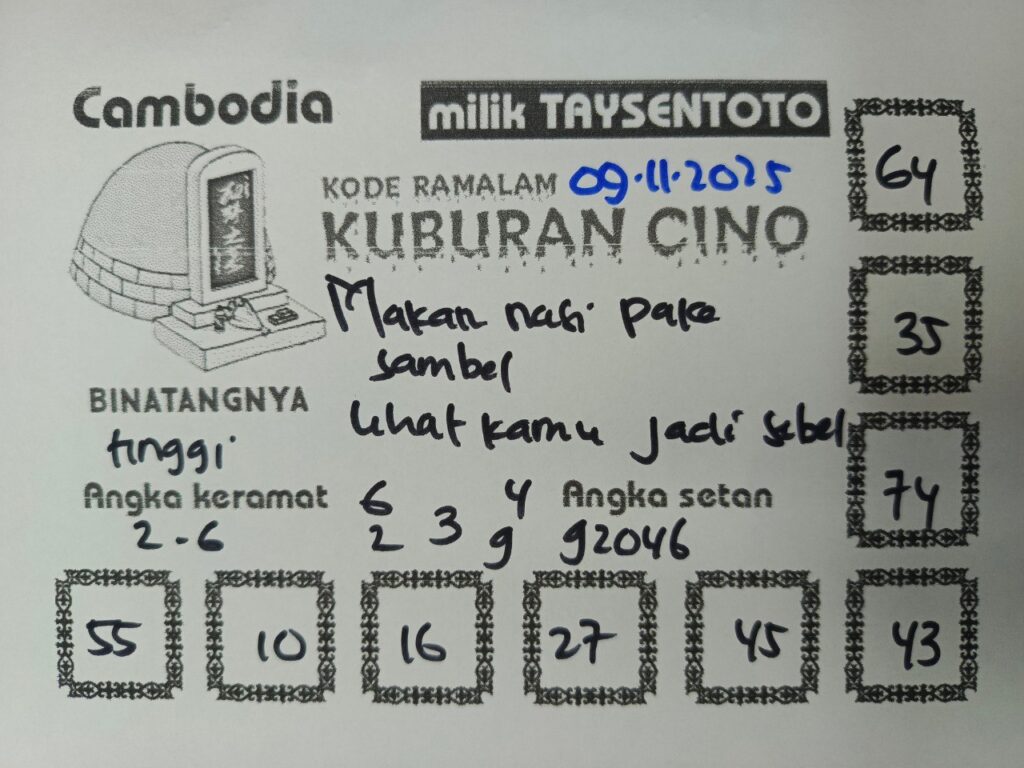 Cambodia
milik TAYSENTOTO
KODE RAMALAM 09.11.2025
KUBURAN CINO
Makan nasi pake
sambel
lihat kamu jadi sebel
BINATANGNYA
tinggi
Angka keramat
2-6
6 4
2 3 9
Angka setan
92046
64
35
74
55 10 16 27 45 43